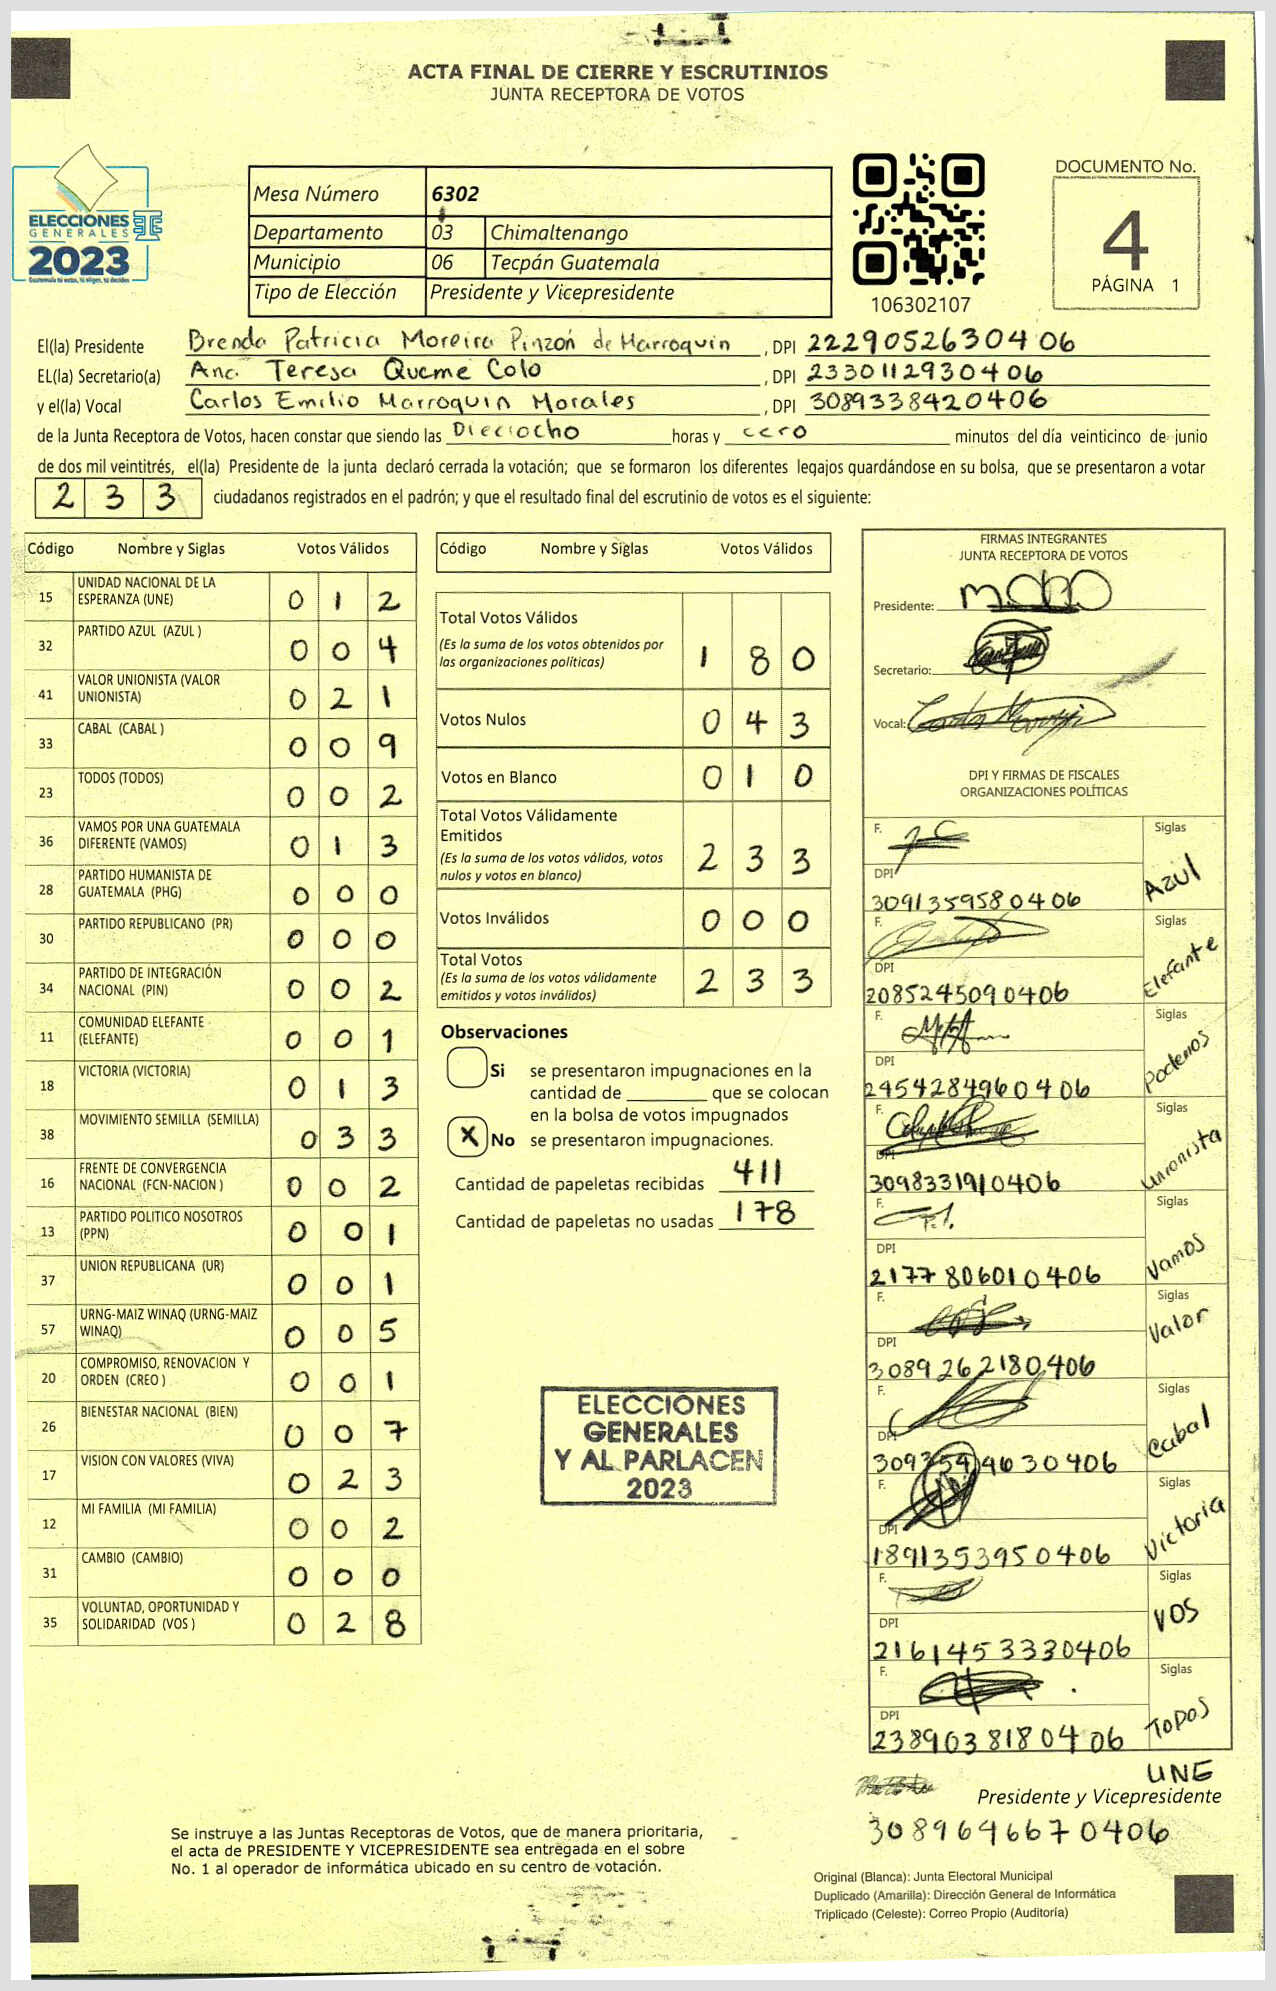 ACTA FINAL DE CIERRE Y ESCRUTINIOS
JUNTA RECEPTORA DE VOTOS
ELECCIONES
GENERALES
2023
Mesa Número 6302
Departamento 03 Chimaltenango
Municipio 06 Tecpán Guatemala
Tipo de Elección Presidente y Vicepresidente
106302107
DOCUMENTO No.
4
PÁGINA 1
El(la) Presidente Brenda Patricia Moreira Pinzón de Marroquin , DPI 2229052630406
EL(la) Secretario(a) Ana Teresa Queme Colo , DPI 2330112930406
y el(la) Vocal Carlos Emilio Marroquin Morales , DPI 3089338420406
de la Junta Receptora de Votos, hacen constar que siendo las Dieciocho horas y cero minutos del día veinticinco de junio
de dos mil veintitrés, el(la) Presidente de la junta declaró cerrada la votación; que se formaron los diferentes legajos guardándose en su bolsa, que se presentaron a votar
233 ciudadanos registrados en el padrón; y que el resultado final del escrutinio de votos es el siguiente:
Código Nombre y Siglas Votos Válidos
15 UNIDAD NACIONAL DE LA ESPERANZA (UNE) 0 1 2
32 PARTIDO AZUL (AZUL ) 0 0 4
41 VALOR UNIONISTA (VALOR UNIONISTA) 0 2 1
33 CABAL (CABAL ) 0 0 9
23 TODOS (TODOS) 0 0 2
36 VAMOS POR UNA GUATEMALA DIFERENTE (VAMOS) 0 1 3
28 PARTIDO HUMANISTA DE GUATEMALA (PHG) 0 0 0
30 PARTIDO REPUBLICANO (PR) 0 0 0
34 PARTIDO DE INTEGRACIÓN NACIONAL (PIN) 0 0 2
11 COMUNIDAD ELEFANTE (ELEFANTE) 0 0 1
18 VICTORIA (VICTORIA) 0 1 3
38 MOVIMIENTO SEMILLA (SEMILLA) 0 3 3
16 FRENTE DE CONVERGENCIA NACIONAL (FCN-NACION ) 0 0 2
13 PARTIDO POLITICO NOSOTROS (PPN) 0 0 1
37 UNION REPUBLICANA (UR) 0 0 1
57 URNG-MAIZ WINAQ (URNG-MAIZ WINAQ) 0 0 5
20 COMPROMISO, RENOVACION Y ORDEN (CREO ) 0 0 1
26 BIENESTAR NACIONAL (BIEN) 0 0 7
17 VISION CON VALORES (VIVA) 0 2 3
12 MI FAMILIA (MI FAMILIA) 0 0 2
31 CAMBIO (CAMBIO) 0 0 0
35 VOLUNTAD, OPORTUNIDAD Y SOLIDARIDAD (VOS ) 0 2 8
Código Nombre y Siglas Votos Válidos
Total Votos Válidos
(Es la suma de los votos obtenidos por
las organizaciones políticas) 1 8 0
Votos Nulos 0 4 3
Votos en Blanco 0 1 0
Total Votos Válidamente
Emitidos
(Es la suma de los votos válidos, votos
nulos y votos en blanco) 2 3 3
Votos Inválidos 0 0 0
Total Votos
(Es la suma de los votos válidamente
emitidos y votos inválidos) 2 3 3
Observaciones
Si se presentaron impugnaciones en la
cantidad de ________ que se colocan
en la bolsa de votos impugnados
X No se presentaron impugnaciones.
Cantidad de papeletas recibidas 411
Cantidad de papeletas no usadas 178
ELECCIONES
GENERALES
Y AL PARLACEN
2023
FIRMAS INTEGRANTES
JUNTA RECEPTORA DE VOTOS
Presidente:
Secretario:
Vocal:
DPI Y FIRMAS DE FISCALES
ORGANIZACIONES POLÍTICAS
F. Siglas Azul
DPI 3091359580406
F. Siglas Elefante
DPI 2085245090406
F. Siglas Podemos
DPI 2454284960406
F. Siglas Unionista
DPI 3098331910406
F. Siglas Vamos
DPI 2177806010406
F. Siglas Valor
DPI 3089262180406
F. Siglas Cabal
DPI
F. Siglas Victoria
DPI 1891353950406
F. Siglas VOS
DPI 2161453330406
F. Siglas TODOS
DPI 2389038180406
UNE
Presidente y Vicepresidente
3089646670406
Se instruye a las Juntas Receptoras de Votos, que de manera prioritaria,
el acta de PRESIDENTE Y VICEPRESIDENTE sea entregada en el sobre
No. 1 al operador de informática ubicado en su centro de votación.
Original (Blanca): Junta Electoral Municipal
Duplicado (Amarilla): Dirección General de Informática
Triplicado (Celeste): Correo Propio (Auditoría)